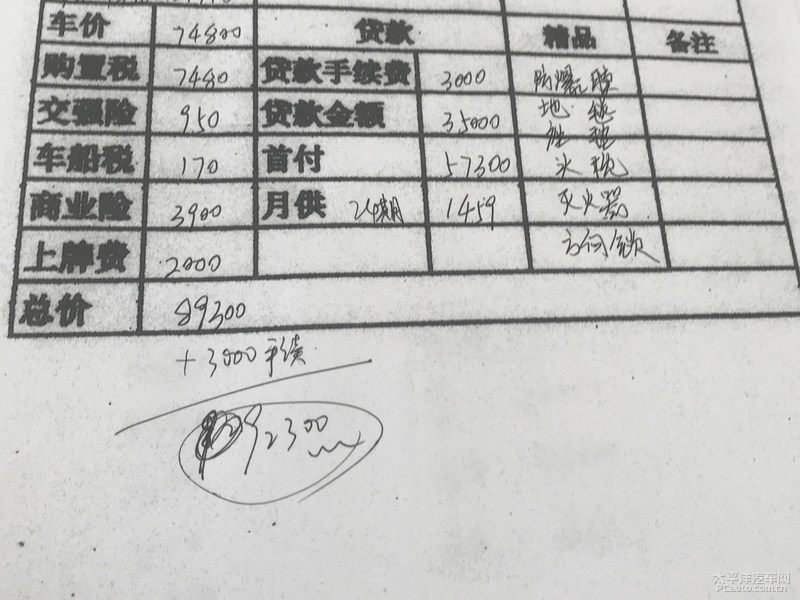 车价 74800 贷款 精品 备注
购置税 7480 贷款手续费 3000 防爆膜
交强险 950 贷款金额 35000 地毯
座垫
车船税 170 首付 57300 头枕
商业险 3900 月供 24期 1459 灭火器
上牌费 2000 方向锁
总价 89300
+3000手续
92300
太平洋汽车网
PCauto.com.cn